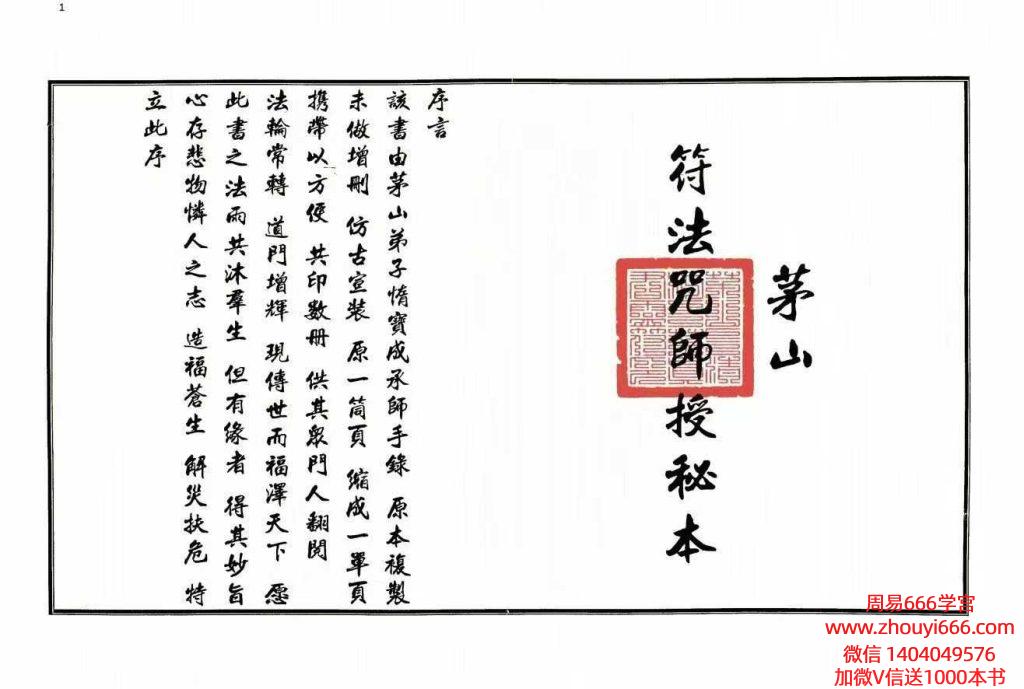 1
茅山
符法咒師授秘本
序言
該書由茅山弟子惰寶成承師手錄 原本複製
未做增刪 仿古宣裝 原一筒頁 縮成一單頁
携帶以方便 共印数册 供其眾門人翻閱
法輪常轉 道門增輝 現傳世而福澤天下 愿
此書之法雨共沐羣生 但有緣者 得其妙旨
心存悲物憐人之志 造福蒼生 解災扶危 特
立此序
周易666学宫
www.zhouyi666.com
微信 1404049576
加微V信送1000本书